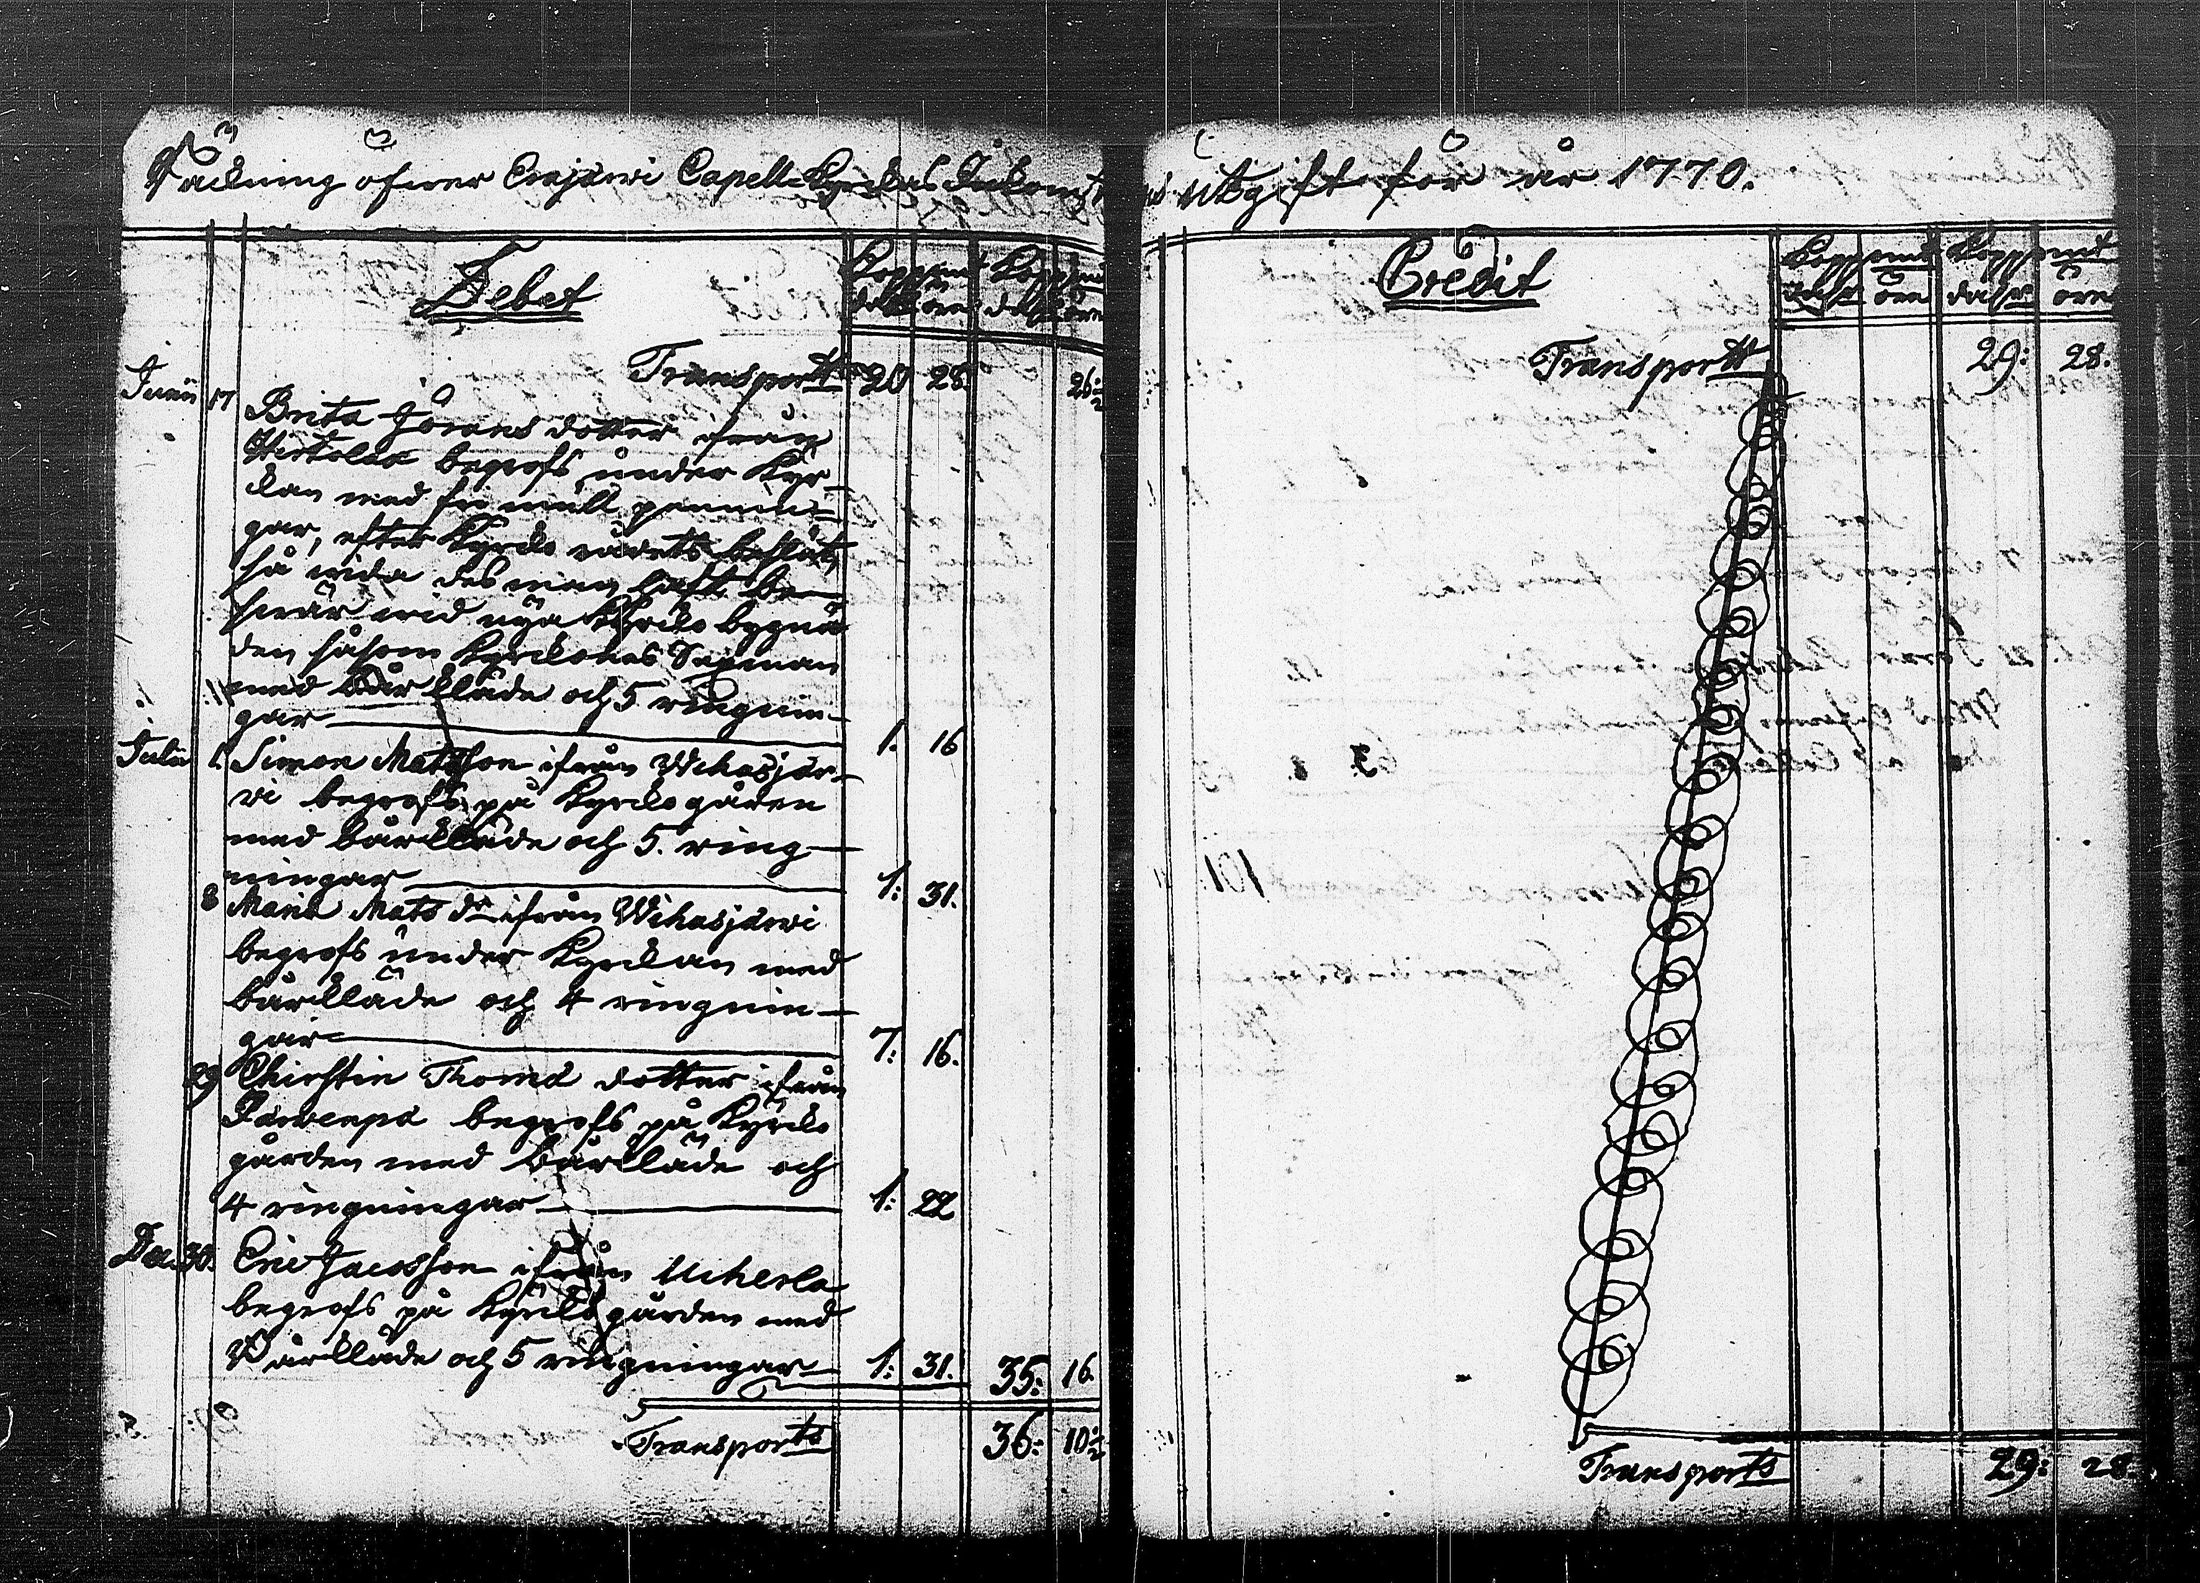 Räckning öfwer Erajärwi Capell Kyrckas Inkomst
utgift för år 1770.
Debet
Koppmt Koppmt
dalr öre dalr öre
Transportt 20 28 26:½
Junii 17 Brita Jörans dotter ifrån
Hirtolax begrofs under Kyr-
ckan med fri mull pennin-
gar, efter Kyrcko rådets beslut,
så wida des man haft be-
swär wid nya Kyrcko bygna
den såsom Kyrckones Sexman
med bårkläde och 5 ringnin-
gar 1: 16
Julii 1. Simon Matsson ifrån Wihasjär-
wi begrofs på Kyrckogåren
med bårkläde och 5. ring-
ningar 1: 31.
8 Maria Mats dr ifrån Wihasjärwi
begrofs under Kyrckan med
bårkläde och 4 ringnin-
gar 7: 16.
29 Chirstin Thomä dotter ifrån
Järwenpä begrofs på Kyrcko
gården med bårkläde och
4 ringningar 1: 22
Dec. 30. Eric Jacosson ifrån Uiherla
begrofs på Kyrckogården med
Bårkläde och 5 ringningar 1: 31. 35: 16.
Transports 36: 10½
Credit
Koppmt Koppmt
dalr öre dalr öre
Transportt 29: 28.
Transports 29: 28.